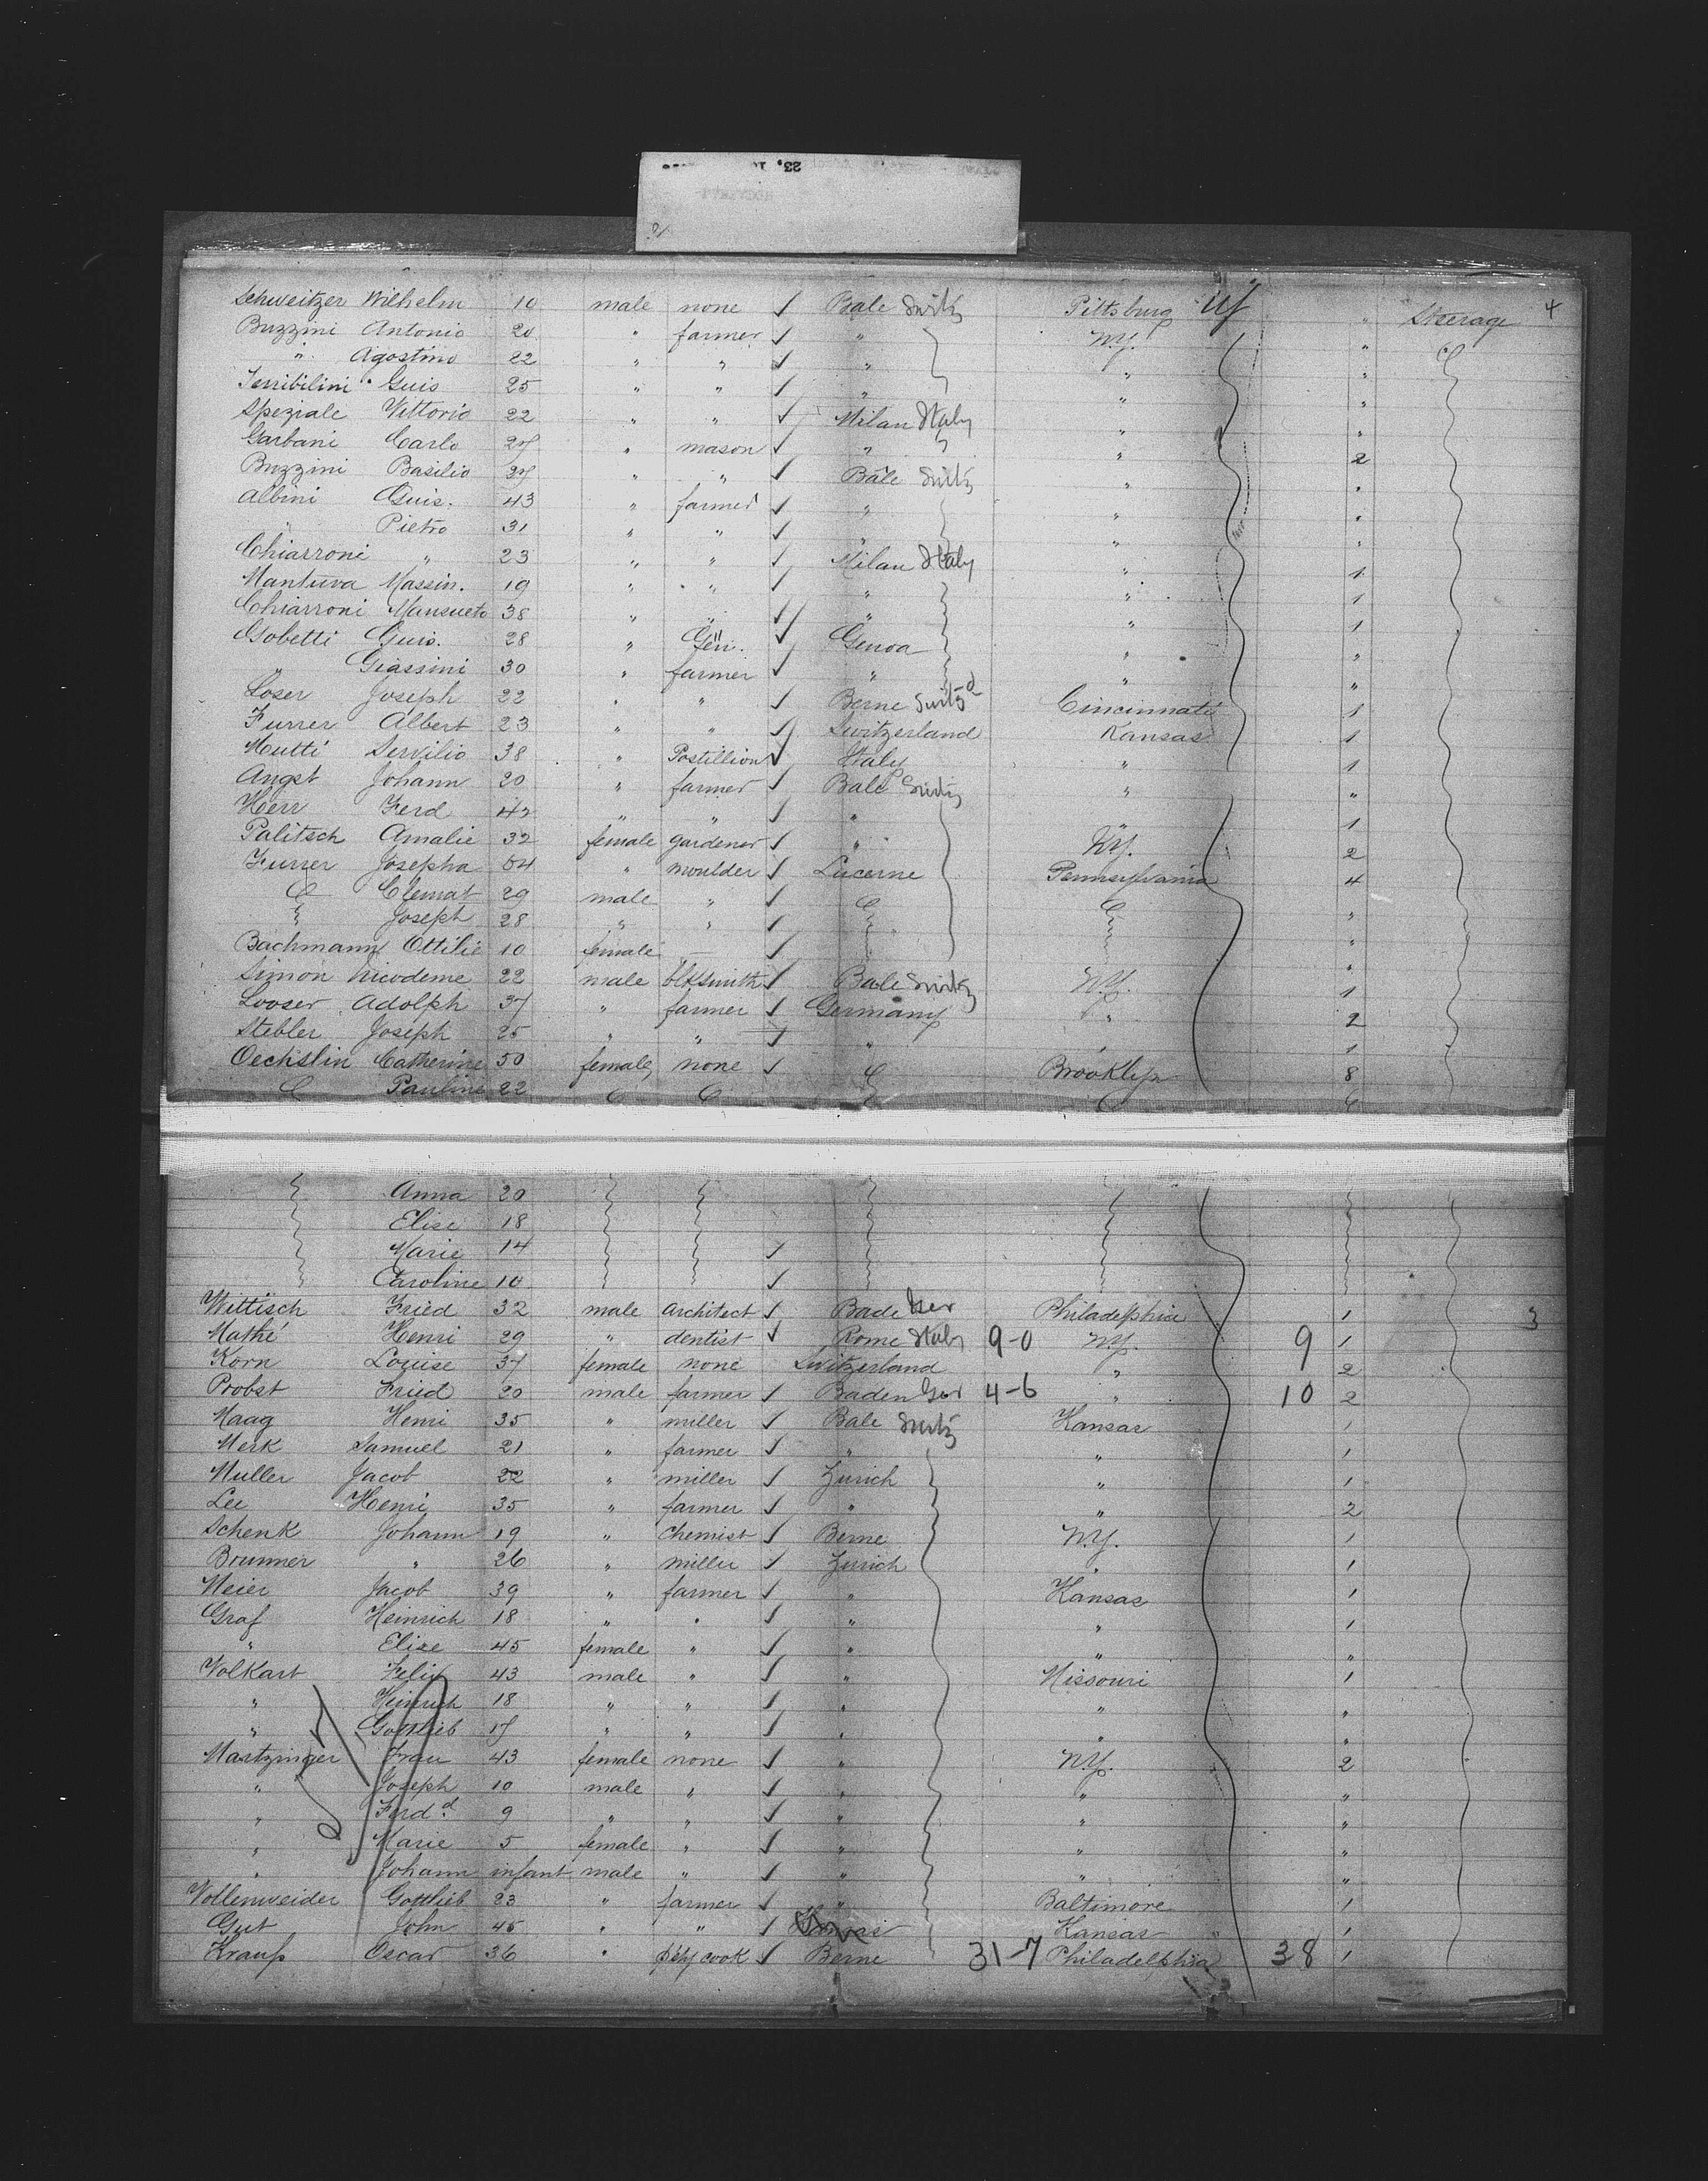 Schweitzer Wilhelm 10 male none ✓ Bale Switz Pittsburg " Steerage 4
Buzzini Antonio 20 " farmer ✓ " N.Y. "
" Agostino 22 " " ✓ " " "
Terribilini Guis 25 " " ✓ " " "
Speziale Vittorio 22 " " ✓ Milan Italy " "
Garbani Carlo 27 " mason ✓ " " 2
Buzzini Basilio 27 " " ✓ Bâle Switz " "
Albini Guis. 43 " farmer ✓ " " "
" Pietro 31 " " ✓ " " "
Chiarroni " 23 " " ✓ Milan Italy " 1
Mantuva Massin. 19 " " ✓ " " 1
Chiarroni Mansueto 38 " " ✓ " " 1
Gobetti Guis. 28 " Gen. ✓ Genoa " "
" Giassini 30 " farmer ✓ " " "
Loser Joseph 22 " " ✓ Berne Switz-d Cincinnati 1
Furrer Albert 23 " " ✓ Switzerland Kansas 1
Mutti Servilio 38 " Postillion ✓ Italy " 1
Angst Johann 20 " farmer ✓ Bale Switz " "
Herr Ferd 42 " " ✓ " " 1
Palitsch Amalie 32 female gardener ✓ " N.Y. 2
Furrer Josepha 54 " moulder ✓ Lucerne Pennsylvania 4
Clemat 29 male " ✓ "
Joseph 28 " " ✓ "
Bachmann Ottilie 10 female ✓ "
Simon Nicodeme 22 male blksmith ✓ Bale Switz N.Y. 1
Looser Adolph 37 " farmer ✓ Germany " 2
Stebler Joseph 25 " " ✓ " " 1
Oechslin Catherine 50 female none ✓ " Brooklyn 8
Pauline 22
Anna 20
Elise 18
Marie 14 ✓
Caroline 10 ✓
Wittisch Fried 32 male architect ✓ Bade Ger Philadelphia 1 3
Mathé Henri 29 " dentist ✓ Rome Italy 9-0 N.Y. 9 1
Korn Louise 37 female none Switzerland " 2
Probst Fried 20 male farmer ✓ Baden Ger 4-6 " 10 2
Maag Henri 35 " miller ✓ Bale Switz Kansas 1
Merk Samuel 21 " farmer ✓ " " 1
Muller Jacob 22 " miller ✓ Zurich " 1
Lee Henri 35 " farmer ✓ " " 2
Schenk Johann 19 " Chemist ✓ Berne N.Y. 1
Brunner " 26 " miller ✓ Zurich " 1
Meier Jacob 39 " farmer ✓ " Kansas 1
Graf Heinrich 18 " " ✓ " " 1
" Elise 45 female " ✓ " " "
Volkart Felix 43 male " ✓ " Missouri 1
" Heinrich 18 " " ✓ " " "
" Gottlieb 17 " " ✓ " " "
Martzinger Frau 43 female none ✓ " N.Y. 2
" Joseph 10 male " ✓ " " "
" Ferdd 9 " " ✓ " " "
" Marie 5 female " ✓ " " "
" Johann infant male " ✓ " " "
Vollenweider Gottlieb 23 " farmer ✓ " Baltimore 1
Gut John 45 " " ✓ Kansas " 1
Krauss Oscar 36 " cook ✓ Berne 31-7 Philadelphia 38 1